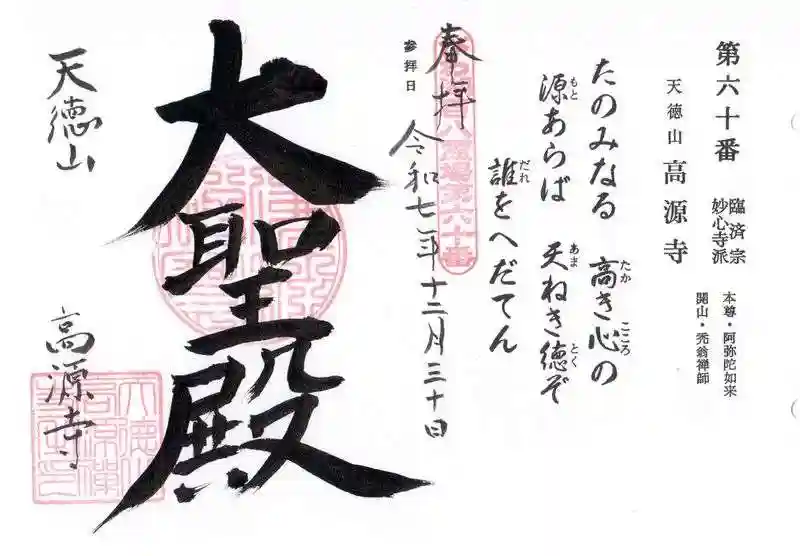 第六十番
臨済宗
妙心寺派
本尊・阿弥陀如来
開山・禿翁禅師
天徳山 高源寺
たのみなる 高き心の
たか こころ
源あらば 天ねき徳ぞ
もと あま とく
誰をへだてん
だれ
奉拝
参拝日
令和七年十二月三十日
大聖殿
天徳山
高源寺